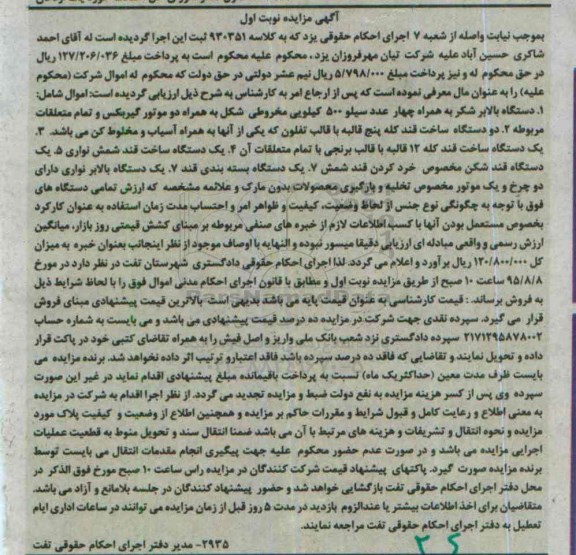 آگهی مزایده نوبت اول
بموجب نیابت واصله از شعبه ۷ اجرای احکام حقوقی یزد که به کلاسه ۹۳۰۳۵۱ ثبت این اجرا گردیده است له آقای احمد
شاکری حسین آباد علیه شرکت تیان مهرفروزان یزد، محکوم علیه محکوم است به پرداخت مبلغ ۱۲۷/۲۰۶/۰۳۶ ریال
در حق محکوم له و نیز پرداخت مبلغ ۵/۷۹۸/۰۰۰ ریال نیم عشر دولتی در حق دولت که محکوم له اموال شرکت (محکوم
علیه) را به عنوان مال معرفی نموده است که پس از ارجاع امر به کارشناس به شرح ذیل ارزیابی گردیده است: اموال شامل:
۱. دستگاه بالابر شکر به همراه چهار عدد سیلو ۵۰۰ کیلویی مخروطی شکل به همراه دو موتور گیربکس و تمام متعلقات
مربوطه ۲. دو دستگاه ساخت قند کله پنج قالبه با قالب تفلون که یکی از آنها به همراه آسیاب و مخلوط کن می باشد. ۳.
یک دستگاه ساخت قند کله ۱۲ قالبه با قالب برنجی با تمام متعلقات آن ۴. یک دستگاه ساخت قند شمش نواری ۵. یک
دستگاه قند شکن مخصوص خرد کردن قند شمش ۶. یک دستگاه بسته بندی قند ۷. یک دستگاه بالابر نواری دارای
دو چرخ و یک موتور مخصوص تخلیه و بارگیری محصولات بدون مارک و علامه مشخصه که ارزش تمامی دستگاه های
فوق با توجه به چگونگی نوع جنس از لحاظ وضعیت، کیفیت و ظواهر امر و احتساب مدت زمان استفاده به عنوان کارکرد
بخصوص مستعمل بودن آنها با کسب اطلاعات لازم از خبره های صنفی مربوطه بر مبنای کشش قیمتی روز بازار، میانگین
ارزش رسمی و واقعی مبادله ای ارزیابی دقیقا میسور نبوده و النهایه با اوصاف موجود از نظر اینجانب بعنوان خبره به میزان
کل ۱۲۰/۸۰۰/۰۰۰ ریال برآورد و اعلام می گردد. لذا اجرای احکام حقوقی دادگستری شهرستان تفت در نظر دارد در مورخ
۹۵/۸/۸ ساعت ۱۰ صبح از طریق مزایده نوبت اول و مطابق با قانون اجرای احکام مدنی اموال فوق را با لحاظ شرایط ذیل
به فروش برساند. : قیمت کارشناسی به عنوان قیمت پایه می باشد بدیهی است بالاترین قیمت پیشنهادی مبنای فروش
قرار می گیرد. سپرده نقدی جهت شرکت در مزایده ده درصد قیمت پیشنهادی می باشد و می بایست به شماره حساب
۲۱۷۱۲۹۵۸۷۸۰۰۲ سپرده دادگستری نزد شعب بانک ملی واریز و اصل فیش را به همراه تقاضای کتبی خود در پاکت قرار
داده و تحویل نمایند و تقاضایی که فاقد ده درصد سپرده باشد فاقد اعتبار و ترتیب اثر داده نخواهد شد. برنده مزایده می
بایست ظرف مدت معین (حداکثر یک ماه) نسبت به پرداخت باقیمانده مبلغ پیشنهادی اقدام نماید در غیر این صورت
سپرده وی پس از کسر هزینه مزایده به نفع دولت ضبط و مزایده تجدید می گردد. از نظر اجرا اقدام به شرکت در مزایده
به معنی اطلاع و رعایت کامل و قبول شرایط و مقررات حاکم بر مزایده و همچنین اطلاع از وضعیت و کیفیت پلاک مورد
مزایده و نحوه انتقال و تشریفات و هزینه های مرتبط با آن می باشد ضمنا انتقال سند و تحویل منوط به قطعیت عملیات
اجرایی مزایده می باشد و در صورت عدم حضور محکوم علیه جهت پیگیری انجام مقدمات انتقال می بایست توسط
برنده مزایده صورت گیرد. پاکتهای پیشنهاد قیمت شرکت کنندگان در مزایده راس ساعت ۱۰ صبح مورخ فوق الذکر در
محل دفتر اجرای احکام حقوقی تفت بازگشایی خواهد شد و حضور پیشنهاد کنندگان در جلسه بلامانع و آزاد می باشد.
متقاضیان برای اخذ اطلاعات بیشتر یا عندالزوم بازدید در مدت ۵ روز قبل از زمان مزایده می توانند در ساعات اداری ایام
تعطیل به دفتر اجرای احکام حقوقی تفت مراجعه نمایند.
۲۹۳۵- مدیر دفتر اجرای احکام حقوقی تفت